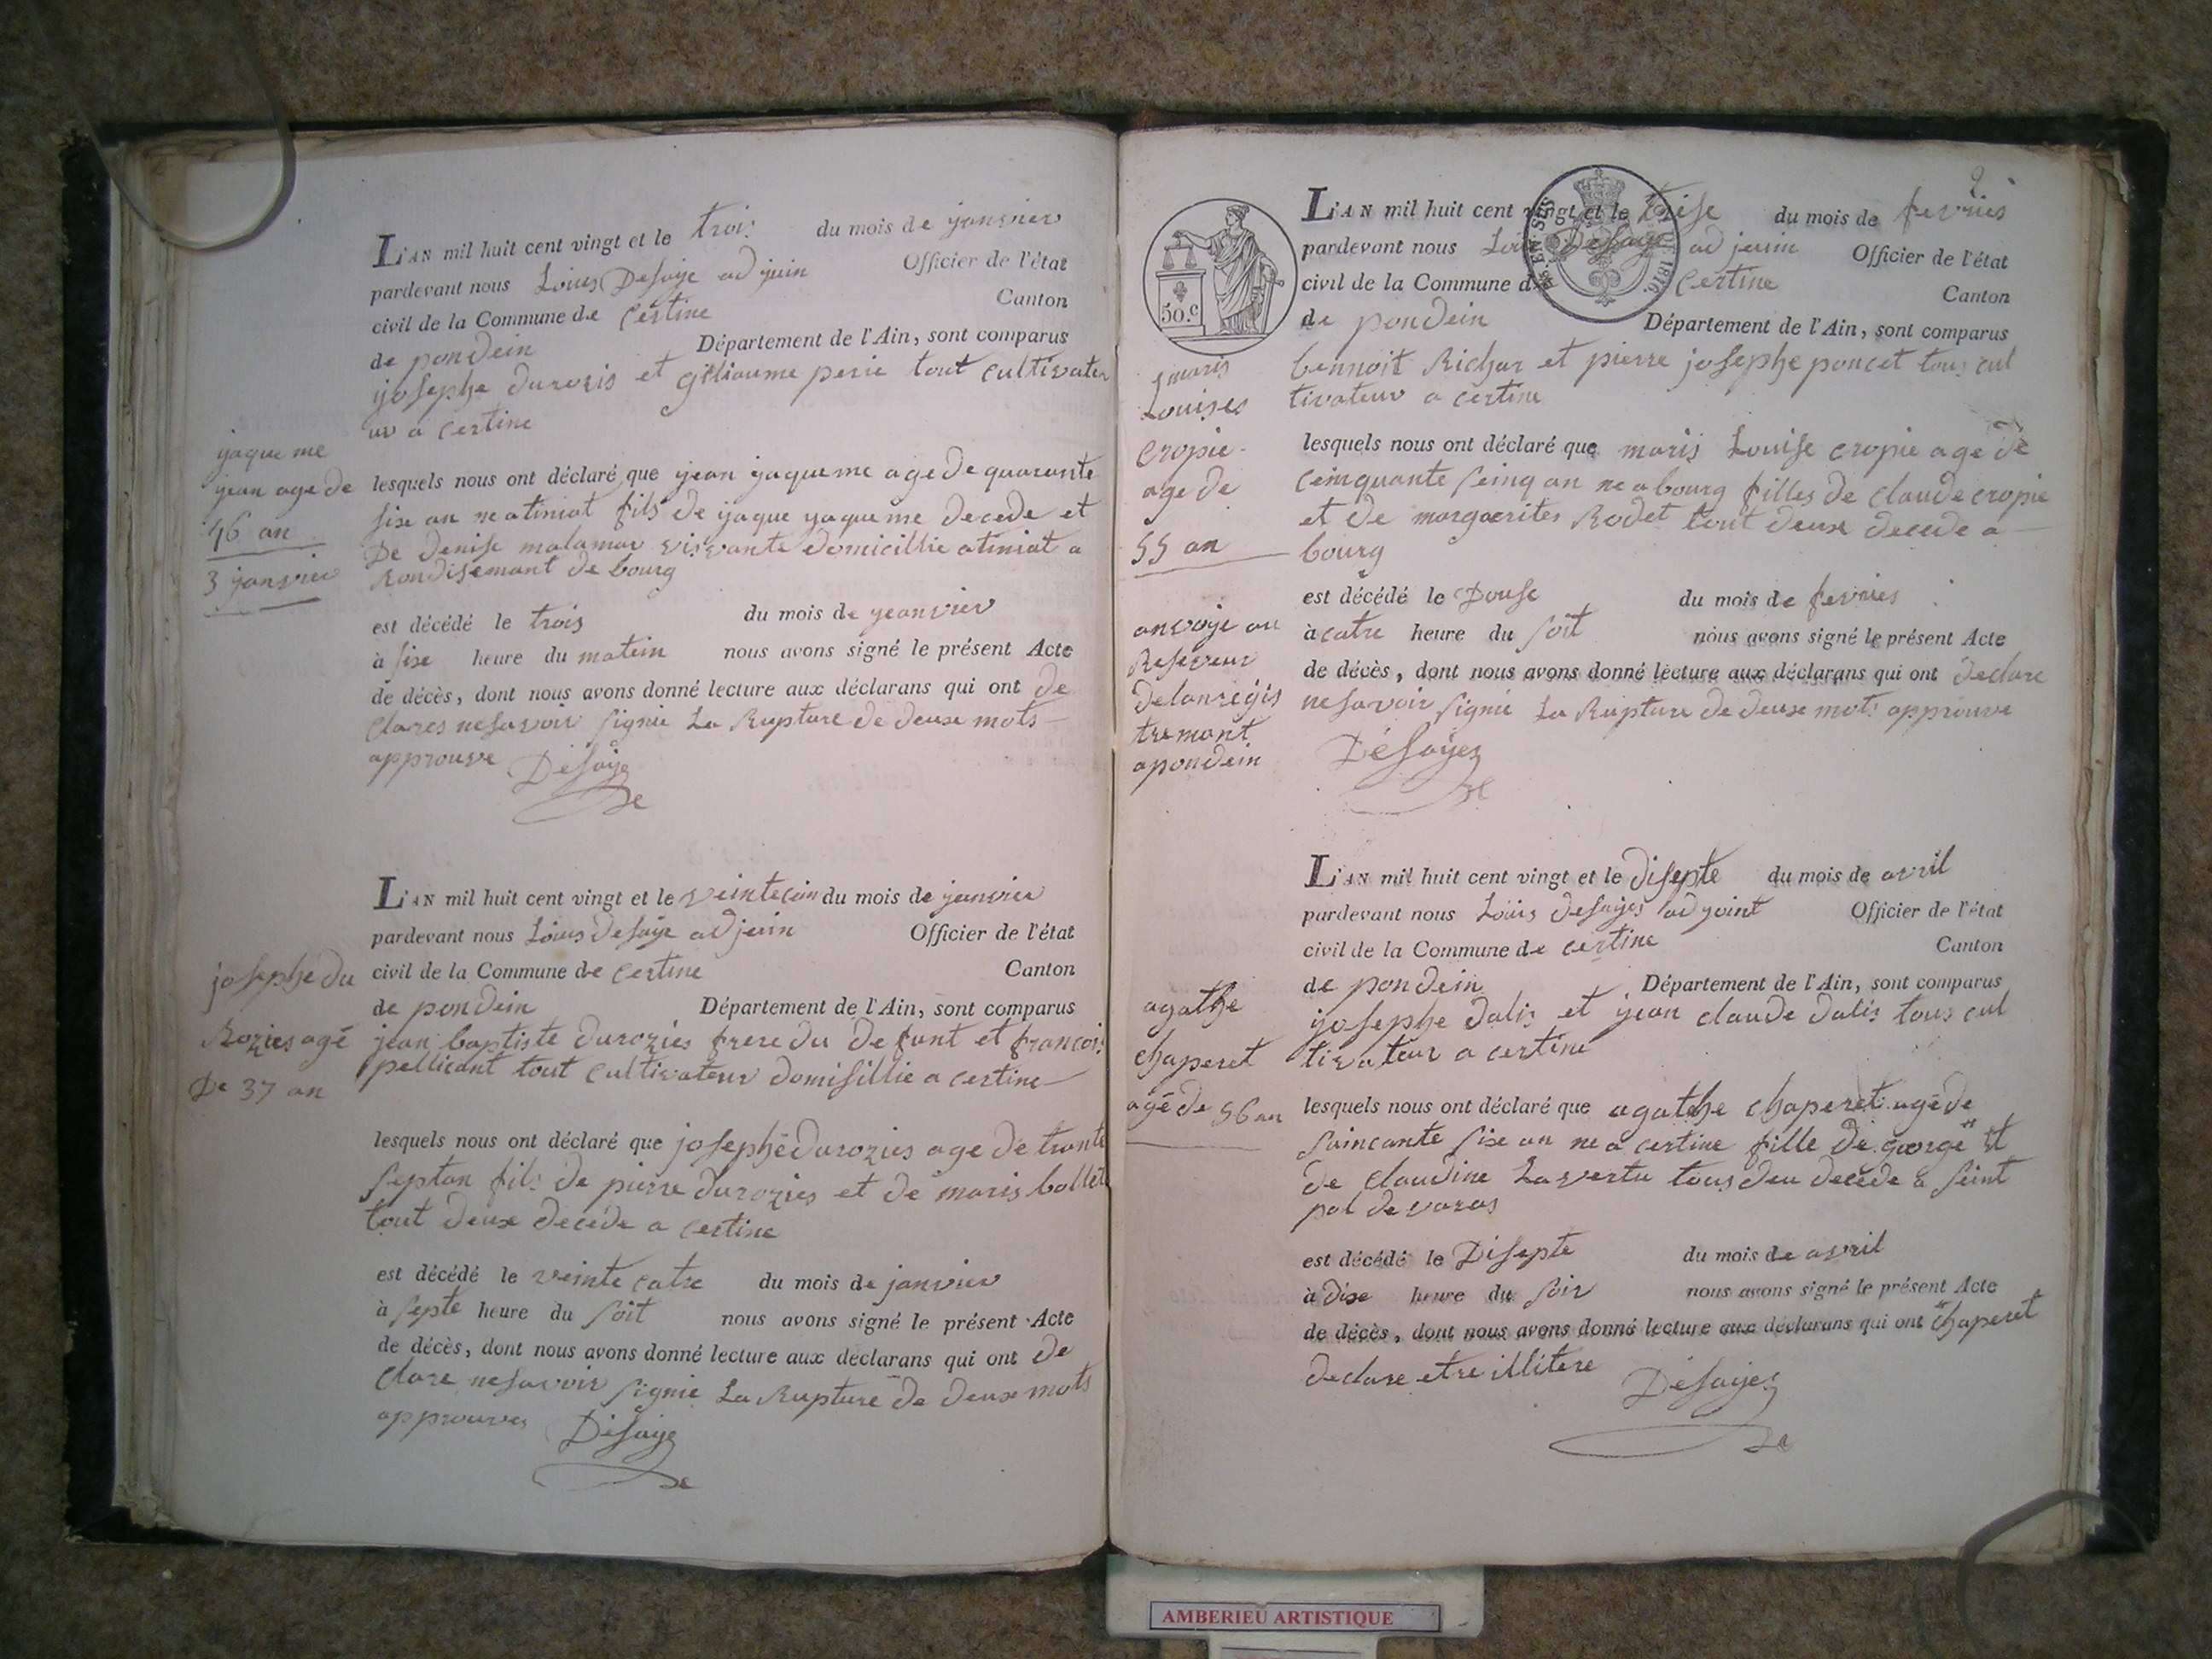 L'AN mil huit cent vingt et le trois du mois de janvier
pardevant nous Louis Desaye adjuin Officier de l'état
civil de la Commune de Certine Canton
de pondein Département de l'Ain, sont comparus
josephe durozis et giliaume perie tout cultivateu
ur a certine
jaqueme
jean age de
46 an
3 janvier
lesquels nous ont déclaré que jean jaqueme age de quarante
sise an ne atiniat fils de jaque jaqueme decede et
De denise malamar vivvante domicillie atiniat a
Rondisemant de bourg
est décédé le trois du mois de jeanvier
à sise heure du matein nous avons signé le présent Acte
de décès, dont nous avons donné lecture aux déclarans qui ont de
clares nesavoir signie La Rupture de deuse mots
approuve Desaye
L'AN mil huit cent vingt et le veintecin du mois de janvier
pardevant nous Louis desaye adjuin Officier de l'état
civil de la Commune de certine Canton
de pondein Département de l'Ain, sont comparus
josephe du
Rozies agé
De 37 an
jean baptiste durozies frere du defunt et francois
pellicant tout cultivateur domisillie a certine
lesquels nous ont déclaré que josephe durozies age de trante
septan fils de pierre durozies et de maris bollet
tout deuse decéde a certine
est décédé le veinte catre du mois de janvier
à septe heure du soit nous avons signé le présent Acte
de décès, dont nous avons donné lecture aux déclarans qui ont de
clare nesavoir signie La Rupture de deuse mots
approuves Desaye
2
L'AN mil huit cent vingt et le treise du mois de fevries
pardevant nous Louis Desaye adjuin Officier de l'état
civil de la Commune de Certine Canton
de pondein Département de l'Ain, sont comparus
50.c
EN SUS
1816
bennoit Richar et pierre josephe poncet tous cul
tivateur a certine
maris
Louises
cropie
age de
55 an
lesquels nous ont déclaré que maris Louise cropie age de
ceinquante seinq an ne a bourg filles de claude cropie
et de margaerites Rodet tout deuse decede a
bourg
est décédé le Douse du mois de fevries
à catre heure du soit nous avons signé le présent Acte
de décès, dont nous avons donné lecture aux déclarans qui ont declare
nesavoir signie La Rupture de deuse mots approuve
Désayez
anvoje au
Reseveur
delanregis
tremant
apondein
L'AN mil huit cent vingt et le disepte du mois de avril
pardevant nous Louis desayes adjoint Officier de l'état
civil de la Commune de certine Canton
de pondein Département de l'Ain, sont comparus
josephe dalis et jean claude dalis tous cul
tivateur a certine
agathe
chaperet
agé de 56 an
lesquels nous ont déclaré que agathe chaperet agé de
saincante sise an ne a certine fille de george et
de claudine Lavertu tous deu decede a seint
pol de varas
est décédé le Disepte du mois de avril
à dise heure du soir nous avons signé le présent Acte
de décès, dont nous avons donné lecture aux déclarans qui ont chaperet
declare etre illitere Désayez
AMBERIEU ARTISTIQUE